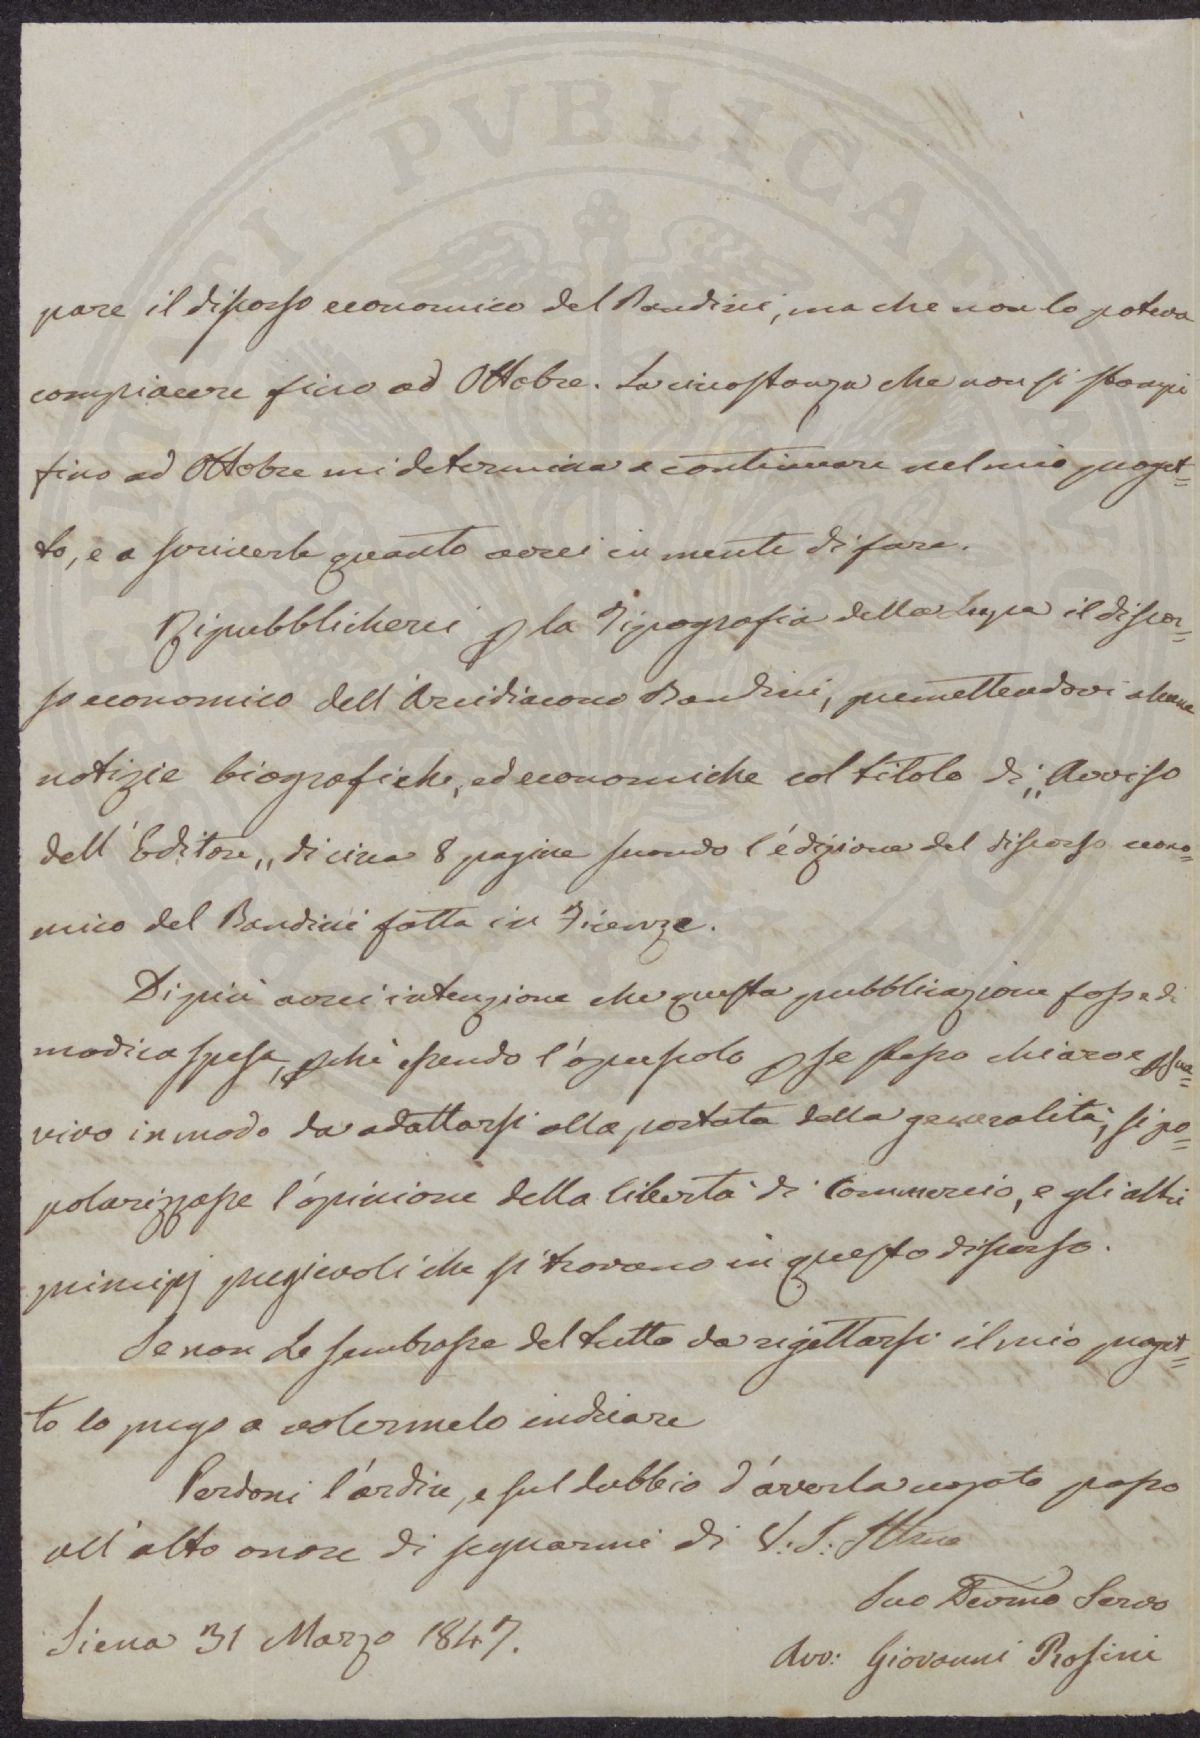 pare il discorso economico del Bandini, ma che non lo poteva
compiacere fino ad Ottobre. La circostanza che non si stampi
fino ad Ottobre mi determina a continuare nel mio proget=
to, e a scriverle quanto avrei in mente di fare.
Ripubblicherei p la Tipografia della Lupa il discor=
so economico dell'Arcidiacono Bandini, premettendovi alcune
notizie biografiche, ed economiche col titolo di „ Avviso
dell'Editore „ di circa 8 pagine secondo l'edizione del discorso econo=
mico del Bandini fatta in Firenze.
Di più avrei intenzione che questa pubblicazione fosse di
modica spesa, pchè essendo l'opuscolo p se stesso chiaro e psua=
sivo in modo da adattarsi alla portata della generalità, si po=
polarizzasse l'opinione della libertà di Commercio, e gli altri
principj pregievoli che si trovano in questo discorso.
Se non Le sembrasse del tutto da rigettarsi il mio proget=
to la prego a volermelo indicare
Perdoni l'ardire, e sul dubbio d'averla nojata passo
all'alto onore di segnarmi di V: S: Illma
Suo Devmo Servo
Siena 31 Marzo 1847.
Avv: Giovanni Rosini
PVBLICAE